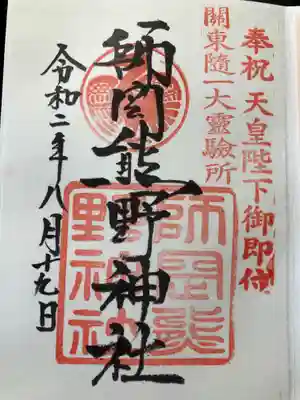 奉祝 天皇陛下御即位
關東隨一大靈驗所
師岡熊野神社
師岡熊
野神社
令和二年八月十九日